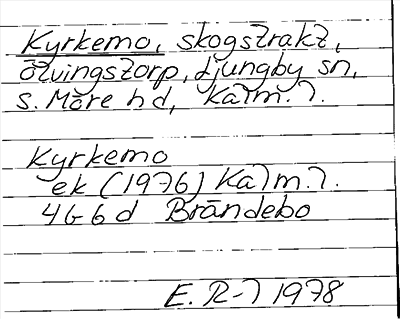 Kyrkemo, skogstrakt,
Ölvingstorp, Ljungby sn,
S. Möre hd, Kalm. l.
Kyrkemo
ek (1976) Kalm. l.
4G 6d Brändebo
E. R-l 1978